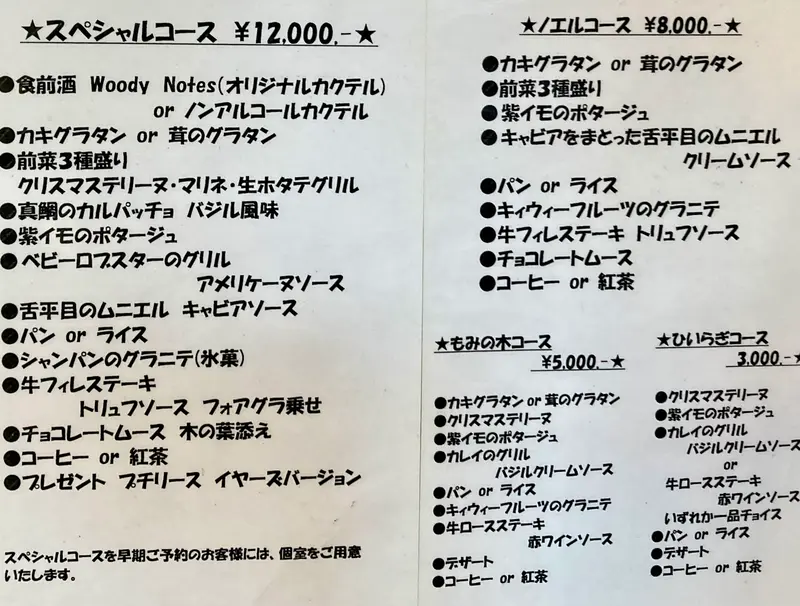 ★スペシャルコース ¥12,000.-★
●食前酒 Woody Notes(オリジナルカクテル)
or ノンアルコールカクテル
●カキグラタン or 茸のグラタン
●前菜3種盛り
クリスマステリーヌ・マリネ・生ホタテグリル
●真鯛のカルパッチョ バジル風味
●紫イモのポタージュ
●ベビーロブスターのグリル
アメリケーヌソース
●舌平目のムニエル キャビアソース
●パン or ライス
●シャンパンのグラニテ(氷菓)
●牛フィレステーキ
トリュフソース フォアグラ乗せ
●チョコレートムース 木の葉添え
●コーヒー or 紅茶
●プレゼント プチリース イヤーズバージョン
スペシャルコースを早期ご予約のお客様には、個室をご用意
いたします。
★ノエルコース ¥8,000.-★
●カキグラタン or 茸のグラタン
●前菜3種盛り
●紫イモのポタージュ
●キャビアをまとった舌平目のムニエル
クリームソース
●パン or ライス
●キィウィーフルーツのグラニテ
●牛フィレステーキ トリュフソース
●チョコレートムース
●コーヒー or 紅茶
★もみの木コース
¥5,000.-★
●カキグラタン or 茸のグラタン
●クリスマステリーヌ
●紫イモのポタージュ
●カレイのグリル
バジルクリームソース
●パン or ライス
●キィウィーフルーツのグラニテ
●牛ロースステーキ
赤ワインソース
●デザート
●コーヒー or 紅茶
★ひいらぎコース
3,000.-★
●クリスマステリーヌ
●紫イモのポタージュ
●カレイのグリル
バジルクリームソース
or
牛ロースステーキ
赤ワインソース
いずれか一品チョイス
●パン or ライス
●デザート
●コーヒー or 紅茶